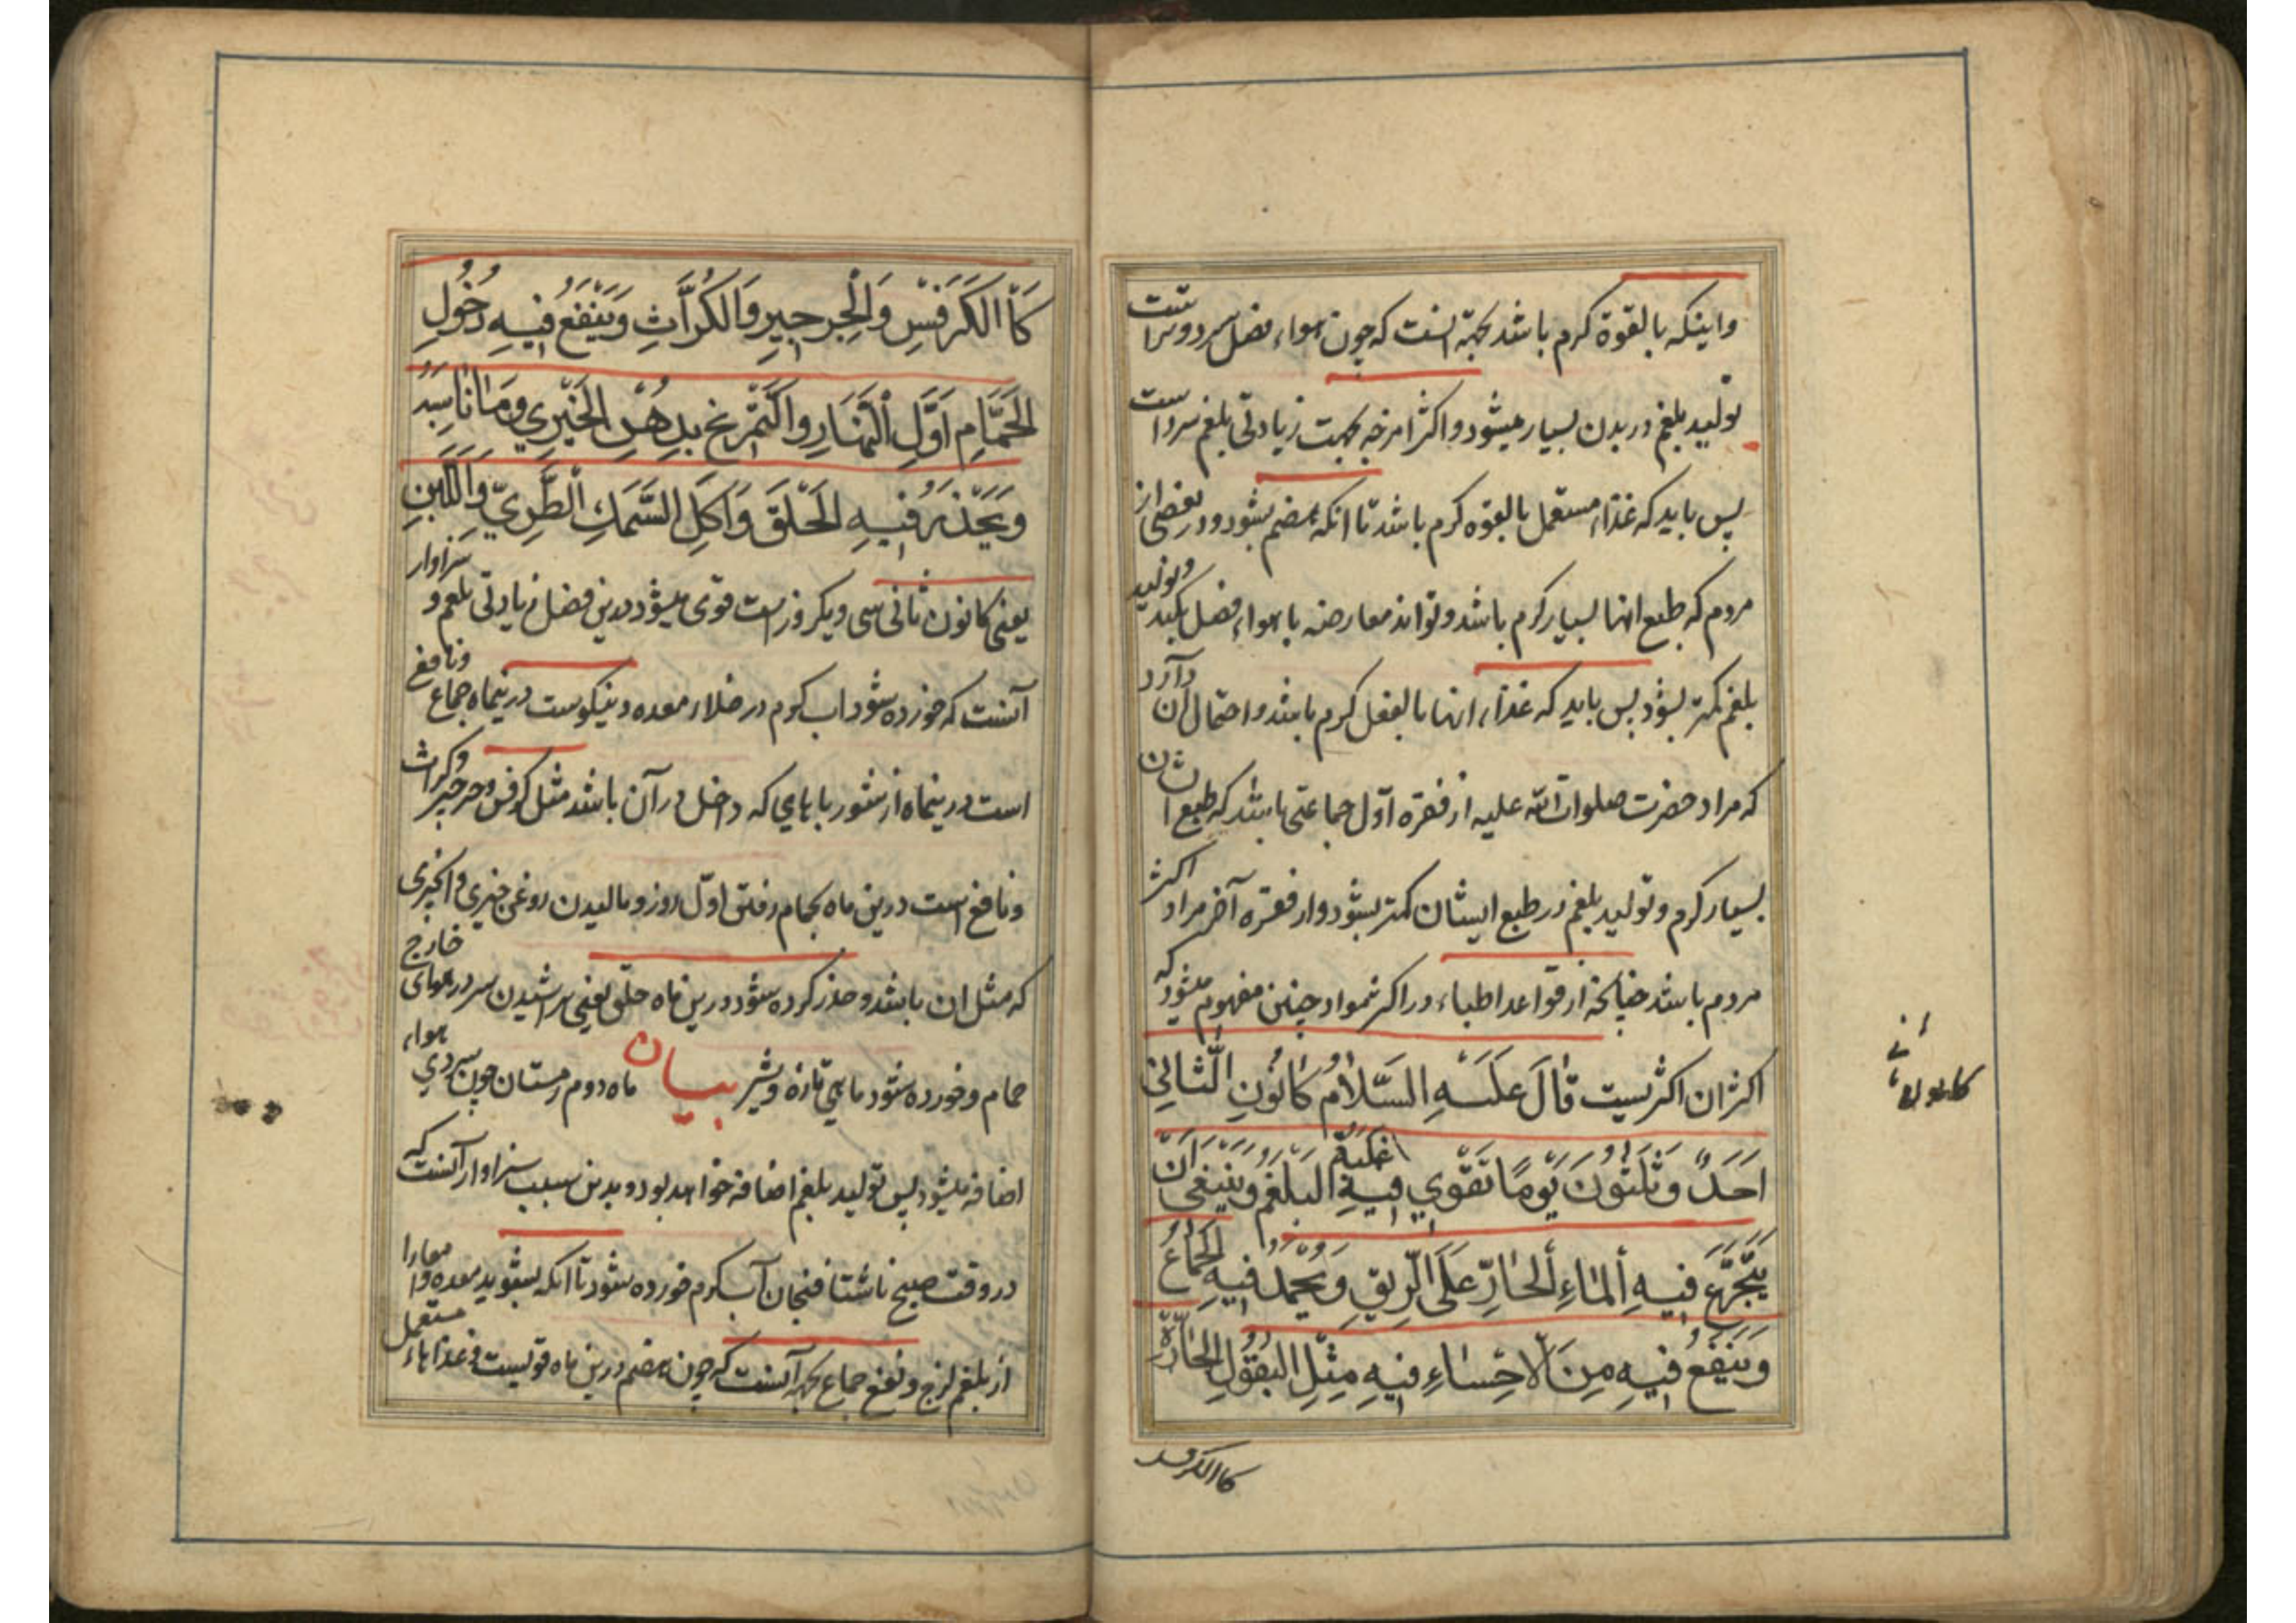 واینکه بالقوة کرم باشد بجهة انست که چون هواء فصل سرد و تر است
تولید بلغم در بدن بسیار میشود و اکثر امزجه بجهت زیادتی بلغم سرد است
پس باید که غذاء مستعمل بالقوه کرم باشد تا انکه هضم بشود و در بعضی از
مردم که طبع انها بسیار کرم باشد و تواند معارضه با هواء فصل بکند و تولید
بلغم کمتر بشود پس باید که غذاء انها بالفعل کرم باشد و احتمال آن دارد
که مراد حضرت صلوات الله علیه از فقره اوّل جماعتی باشد که طبع ایشان
بسیار کرم و تولید بلغم در طبع ایشان کمتر بشود و از فقره آخر مراد اکثر
مردم باشد چنانچه از قواعد اطباء در اکثر مواد چنین مفهوم میشود که
اکثر ان اکثریست قٰالَ عَلَیْهِ السَّلاٰمُ کٰانُونِ الثّٰانِي
اَحَدٌ وَثَلٰثُونَ یَوْمًا تَقَوّي فِیهِ غَلَبَةُ البَلْغَمُ وَیَنْبَغي اَنْ
یَتَجَرَّعَ فیهِ اَلمٰاءِ اَلحٰارِّ عَلَی الرّیقِ وَیُحْمَدُ فیهِ الجِمٰاعُ
وَیَنْفَعُ فیهِ مِنَ الاَحْشٰاءِ فیهِ مِثْلِ البُقُولِ الحٰارَّةِ
کاالکرفس
کانون ثانی
کَاْالکَرَفْسِ وَالْجِرجیرِ وَالکُرّاثِ وَیَنْفَعُ فیهِ دُخُولِ
الحَمّٰامِ اَوَّلِ النَّهٰارِ وَالتَّمْرّخ بِدِهْنِ الخَیْرِي وَمٰا نٰاسَبَهُ
وَیَحْذَرُ فیهِ الحَلْقَ وَاَکْلَ السَّمَكِ الطَّرِيّ وَاللَّبَنِ
یعنی کانون ثانی سی و یکروز است قوی میشود درین فصل زیادتی بلغم و سزاوار
آنست که خورده شود اب کرم در خلاء معده و نیکوست درینماه جماع و نافع
است درینماه از شورباهایی که داخل در آن باشد مثل کرفس و جرجیر و کراث
و نافع است درین ماه بحمام رفتن اوّل روز و مالیدن روغن خیری و انچیزی
که مثل ان باشد و حذر کرده شود درین ماه حلق یعنی تراشیدن سر در هوای خارج
حمام و خورده شود ماهی تازه و شیر بیان ماه دوم زمستان چون سردي هواء
اضافه میشود پس تولید بلغم اضافه خواهد بود و بدین سبب سزاوار آنست که
در وقت صبح ناشتا فنجان آب کرم خورده شود تا انکه بشوید معده و امعا را
از بلغم لزج و نفع جماع بجهة آنست که چون هضم درین ماه قویست و غذاهاء مستعمل